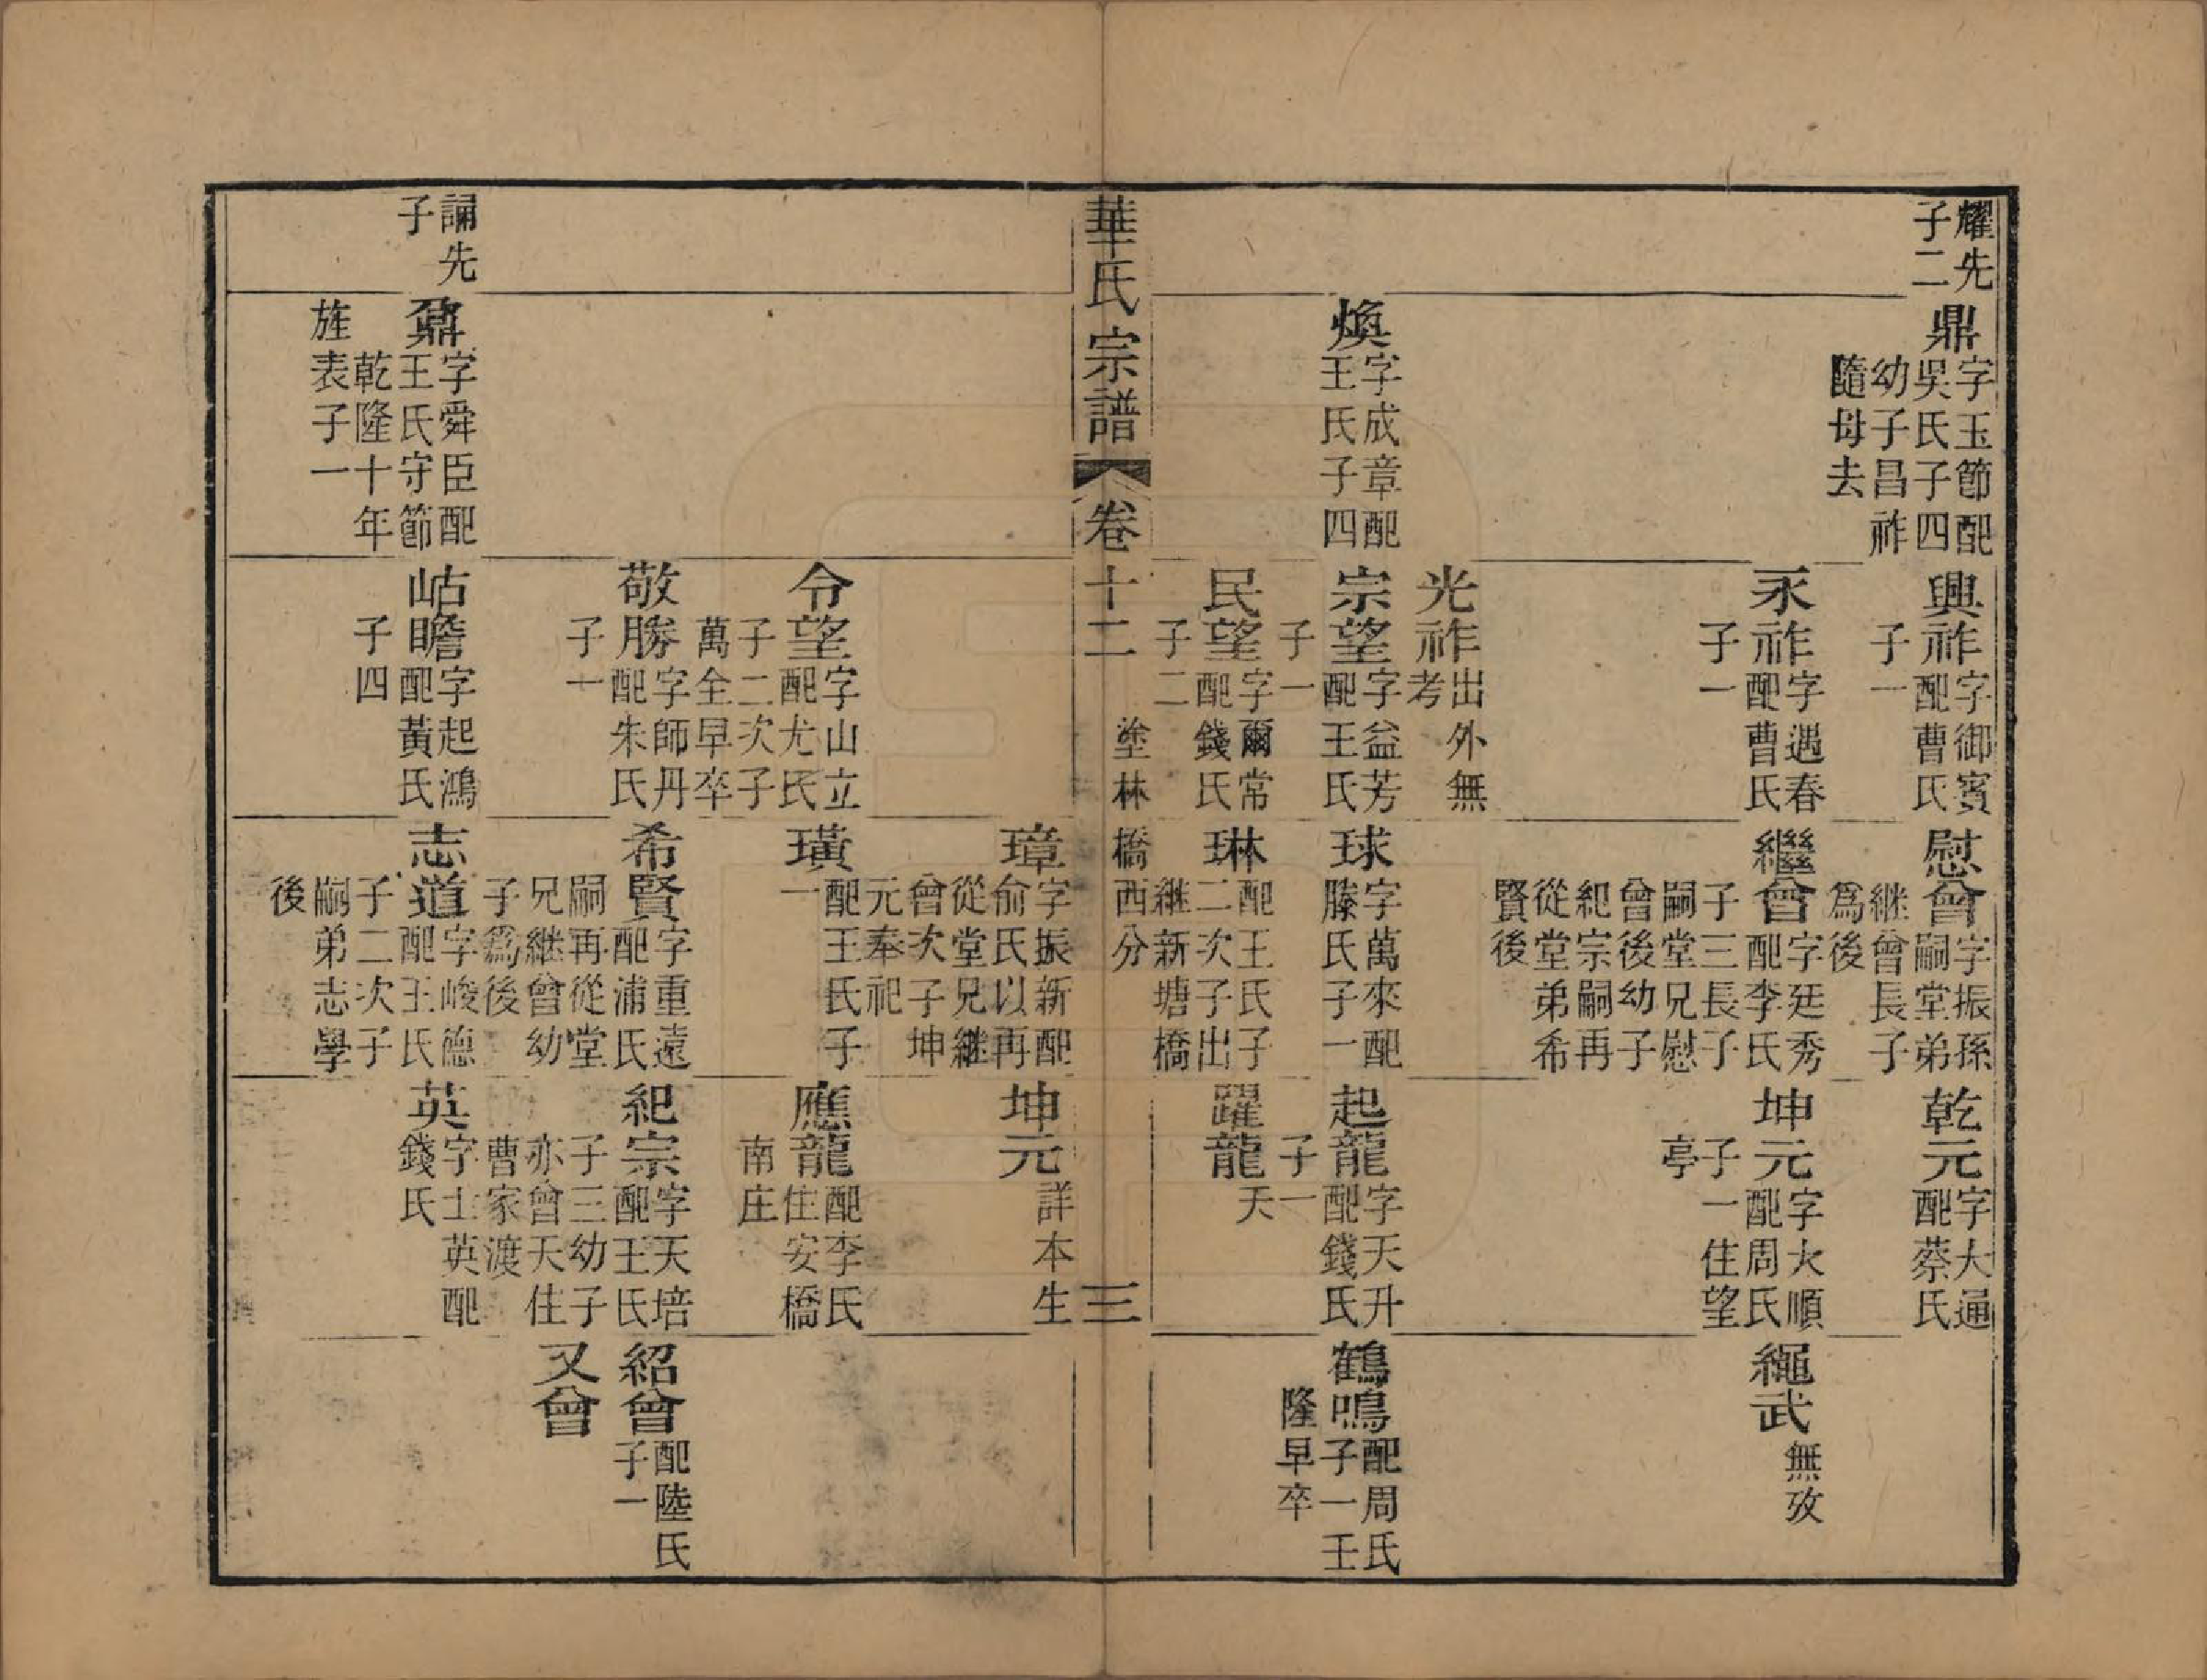 耀先
子二
鼎
字玉節配
吳氏子四
幼子昌祚
隨母去
煥
字成章配
王氏子四
興祚
字御賓
配曹氏
子一
永祚
字遇春
配曹氏
子一
光祚
出外無
考
宗望
字益芳
配王氏
子一
民望
字爾常
配錢氏
子二
慰曾
字振孫
嗣堂弟
継曾長子
爲後
繼曾
字廷秀
配李氏
子三長子
嗣堂兄慰
曾後幼子
紀宗嗣再
從堂弟希
賢後
球
字萬來配
滕氏子一
琳
配王氏子
二次子出
継新塘橋
乾元
字大通
配蔡氏
坤元
字大順
配周氏
子一住望
亭
起龍
字天升
配錢氏
子一
躍龍
天
繩武
無攷
鶴鳴
配周氏
子一壬
隆早卒
華氏宗譜
卷十二
塗林橋西分
三
令望
字山立
配尤氏
子二次子
萬全早卒
敬勝
字師丹
配朱氏
子一
璋
字振新配
俞氏以再
從堂兄継
曾次子坤
元奉祀
璜
配王氏子
一
希賢
字重遠
配浦氏
嗣再從堂
兄継曾幼
子爲後
坤元
詳本生
應龍
配李氏
住安橋
南庄
紀宗
字天培
配王氏
子三幼子
亦曾天住
曹家渡
紹曾
配陸氏
子一
又曾
誦先
子
鼐
字舜臣配
王氏守節
乾隆十年
旌表子一
岵瞻
字起鴻
配黃氏
子四
志道
字峻德
配王氏
子二次子
嗣弟志學
後
英
字士英配
錢氏